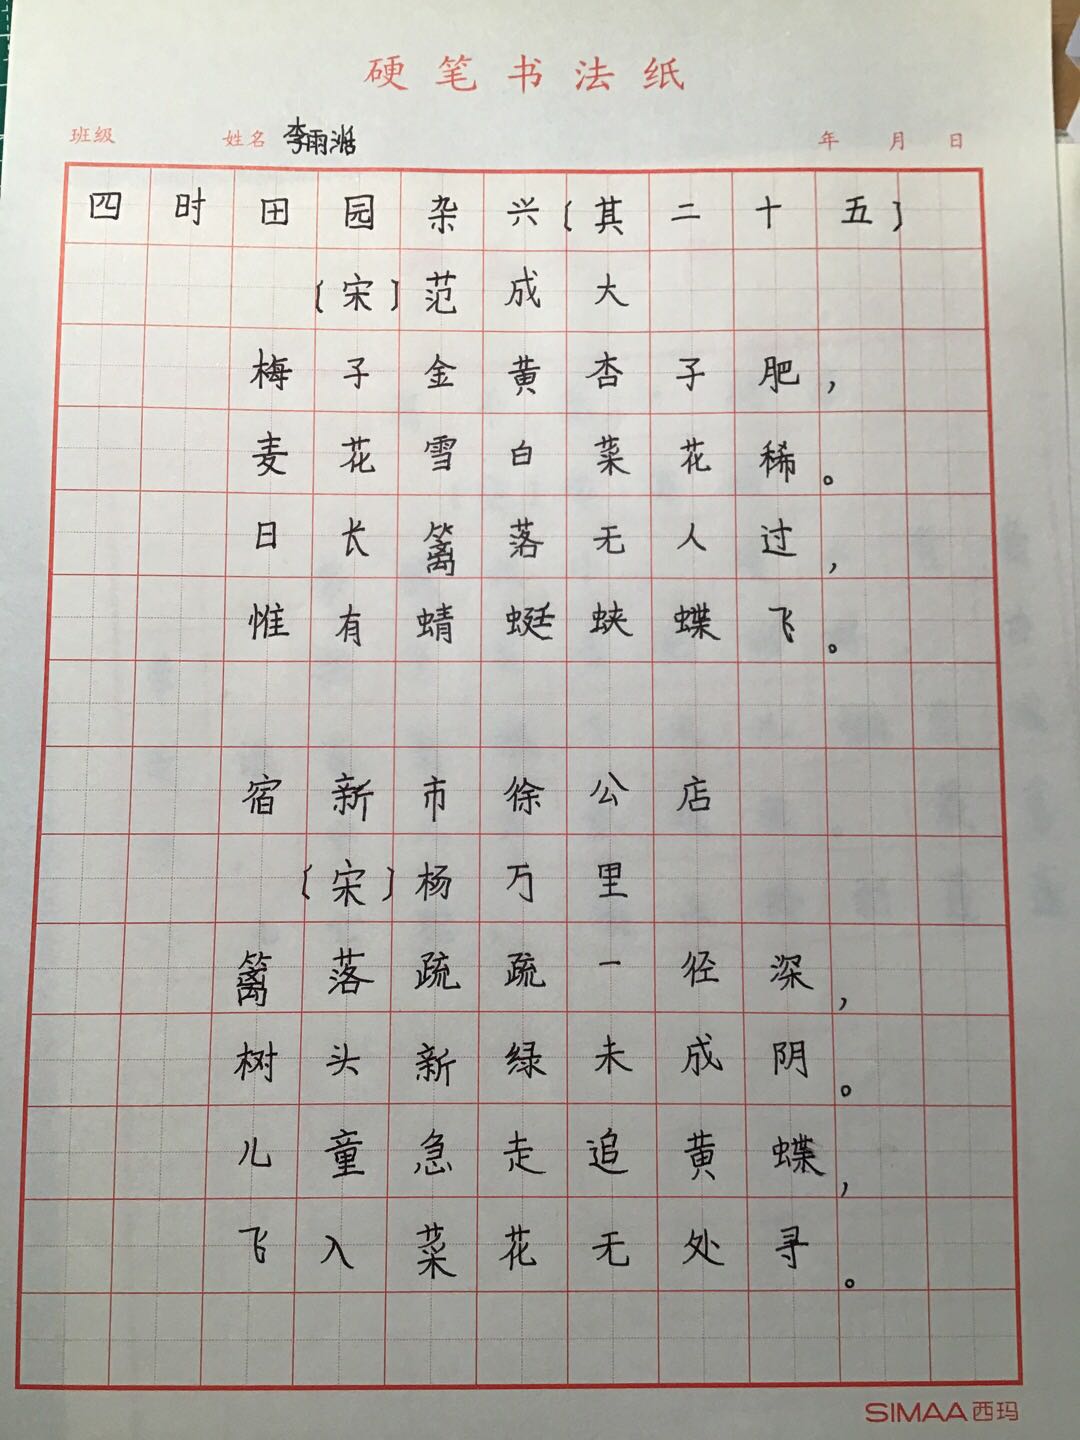 硬笔书法纸
班级 姓名 李雨湉 年 月 日
四时田园杂兴〔其二十五〕
〔宋〕范成大
梅子金黄杏子肥，
麦花雪白菜花稀。
日长篱落无人过，
惟有蜻蜓蛱蝶飞。
宿新市徐公店
〔宋〕杨万里
篱落疏疏一径深，
树头新绿未成阴。
儿童急走追黄蝶，
飞入菜花无处寻。
SIMAA西玛